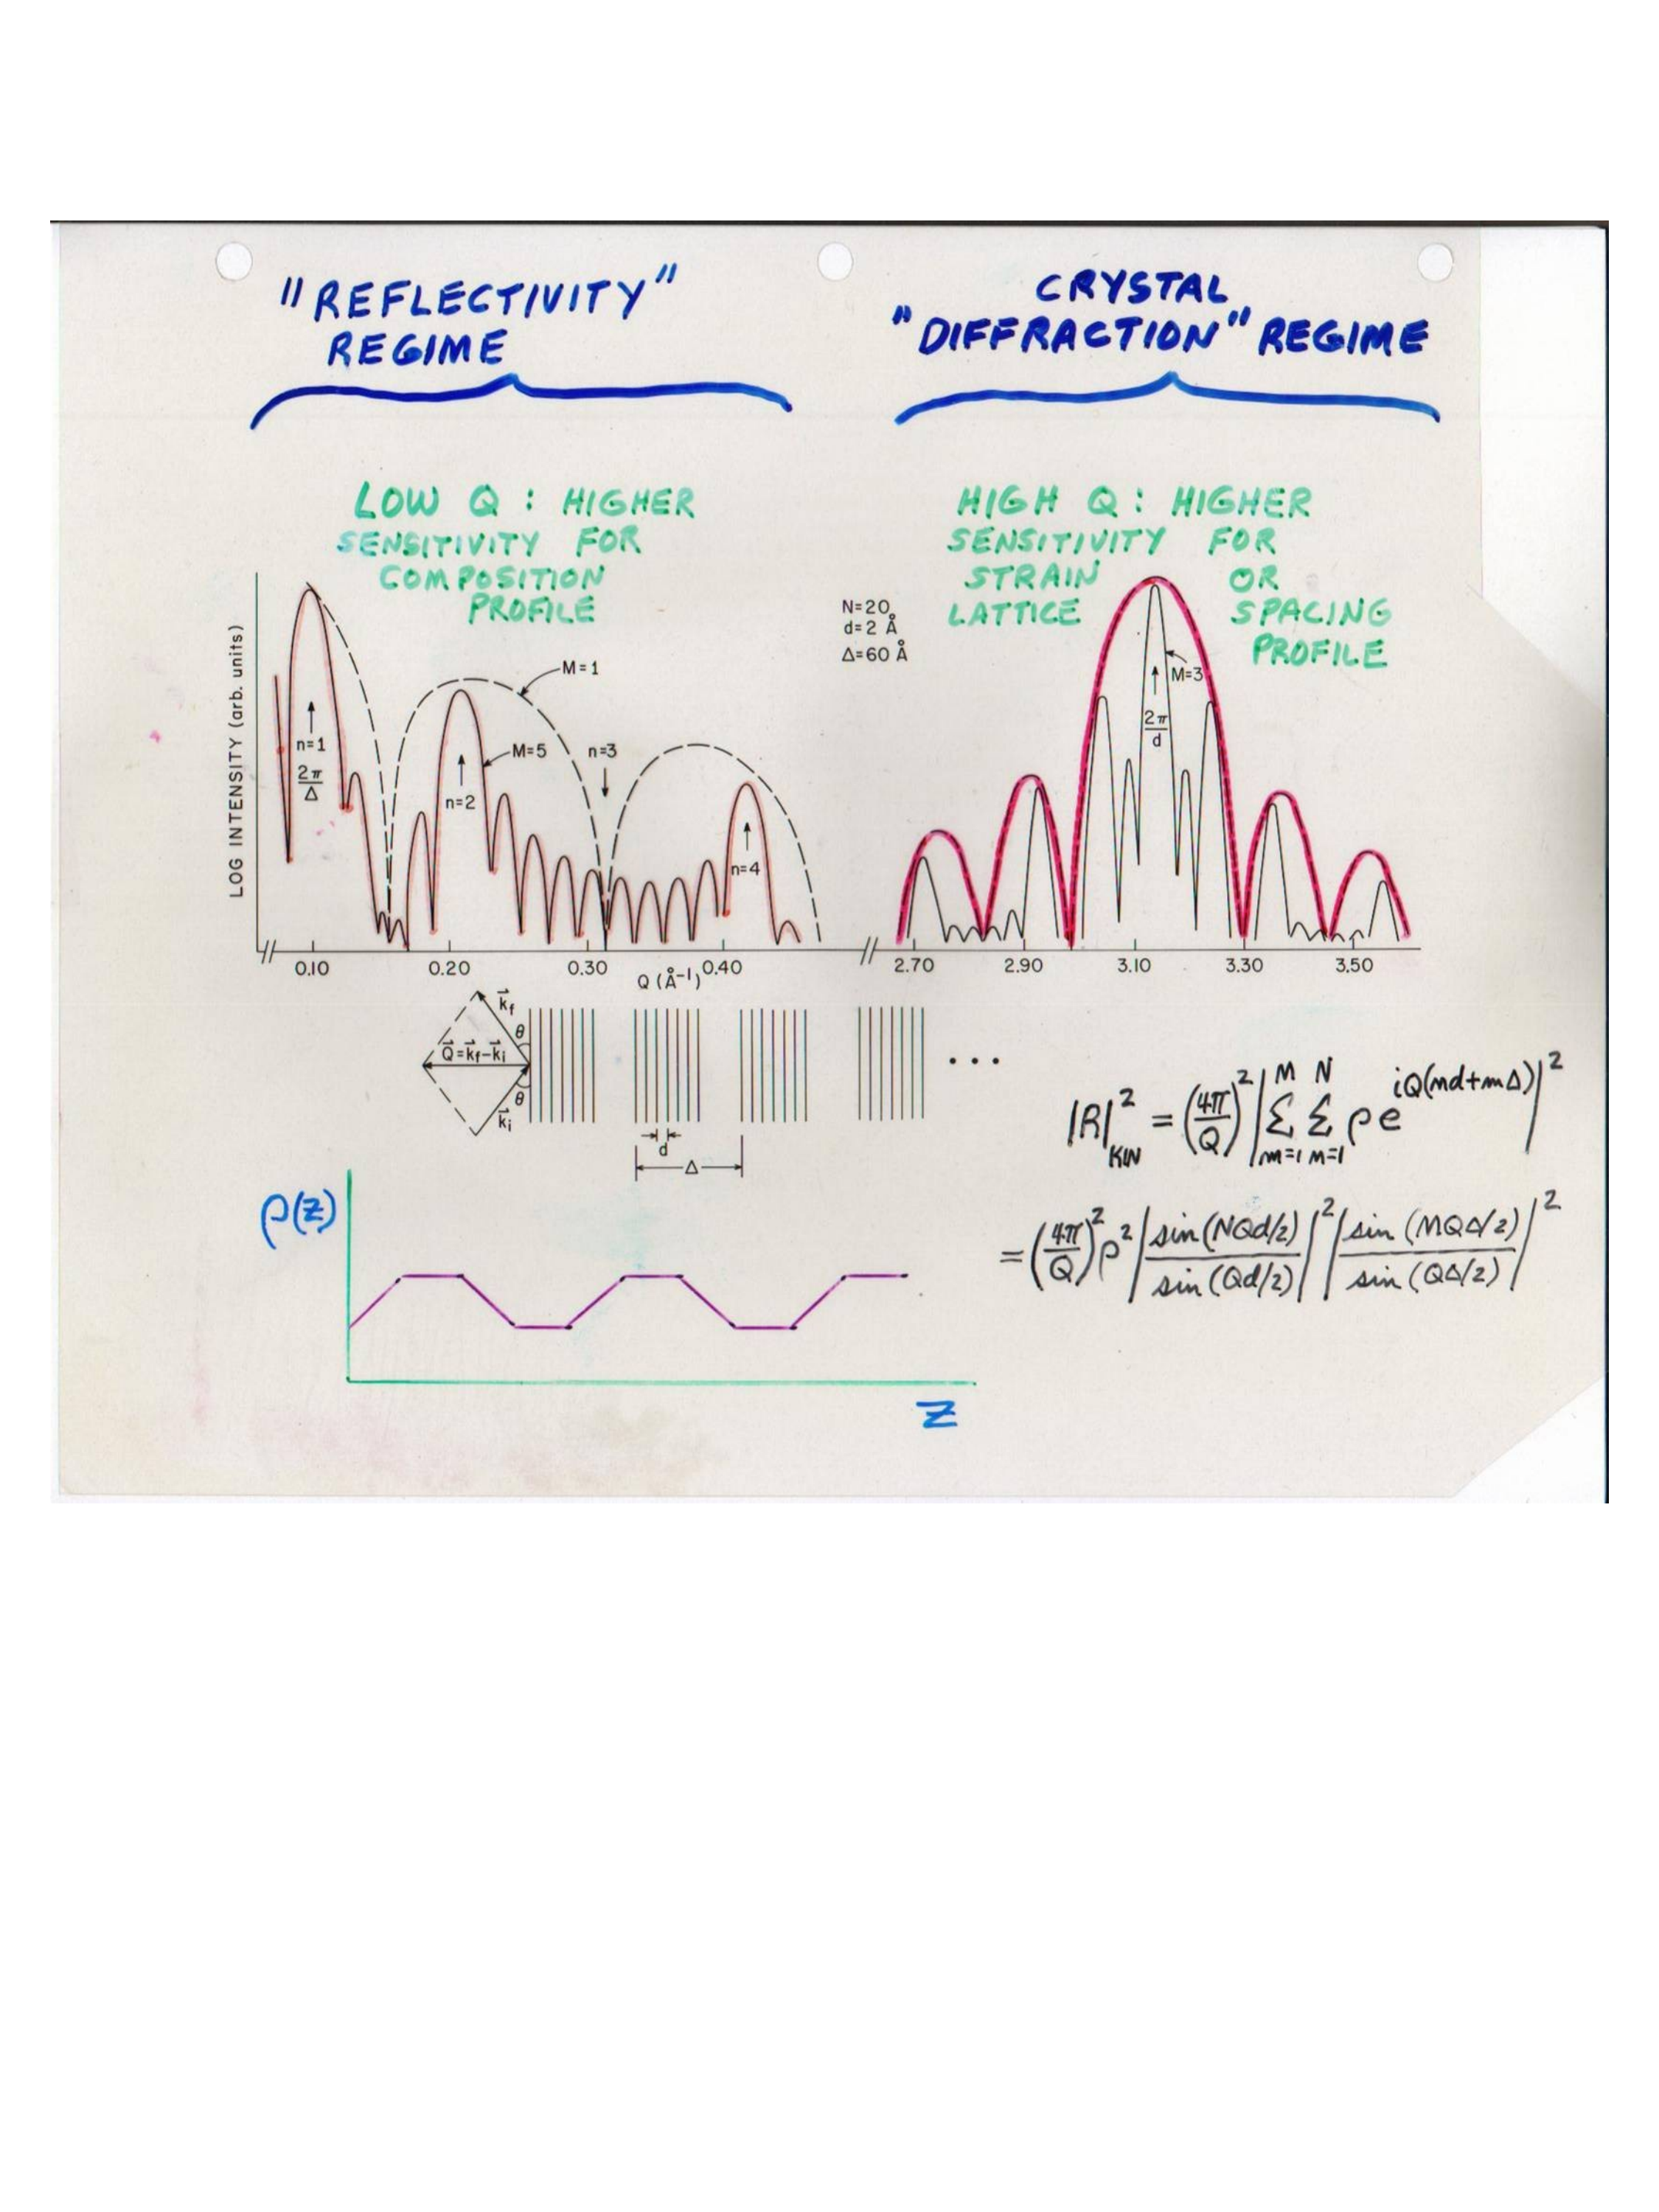 "REFLECTIVITY"
REGIME
CRYSTAL
"DIFFRACTION" REGIME
LOW Q : HIGHER
SENSITIVITY FOR
COMPOSITION
PROFILE
HIGH Q : HIGHER
SENSITIVITY FOR
STRAIN OR
LATTICE SPACING
PROFILE
N=20
d=2 Å
Δ=60 Å
LOG INTENSITY (arb. units)
M=1
M=5
n=1
2π/Δ
n=2
n=3
n=4
M=3
2π/d
0.10 0.20 0.30 0.40 2.70 2.90 3.10 3.30 3.50
Q (Å⁻¹)
k⃗f
θ
Q⃗=k⃗f-k⃗i
θ
k⃗i
d
Δ
...
|R|²KIN = (4π/Q)² |Σ(m=1..M) Σ(m=1..N) ρ e^{iQ(nd+mΔ)}|²
= (4π/Q)² ρ² |sin(NQd/2)/sin(Qd/2)|² |sin(MQΔ/2)/sin(QΔ/2)|²
ρ(z)
Z